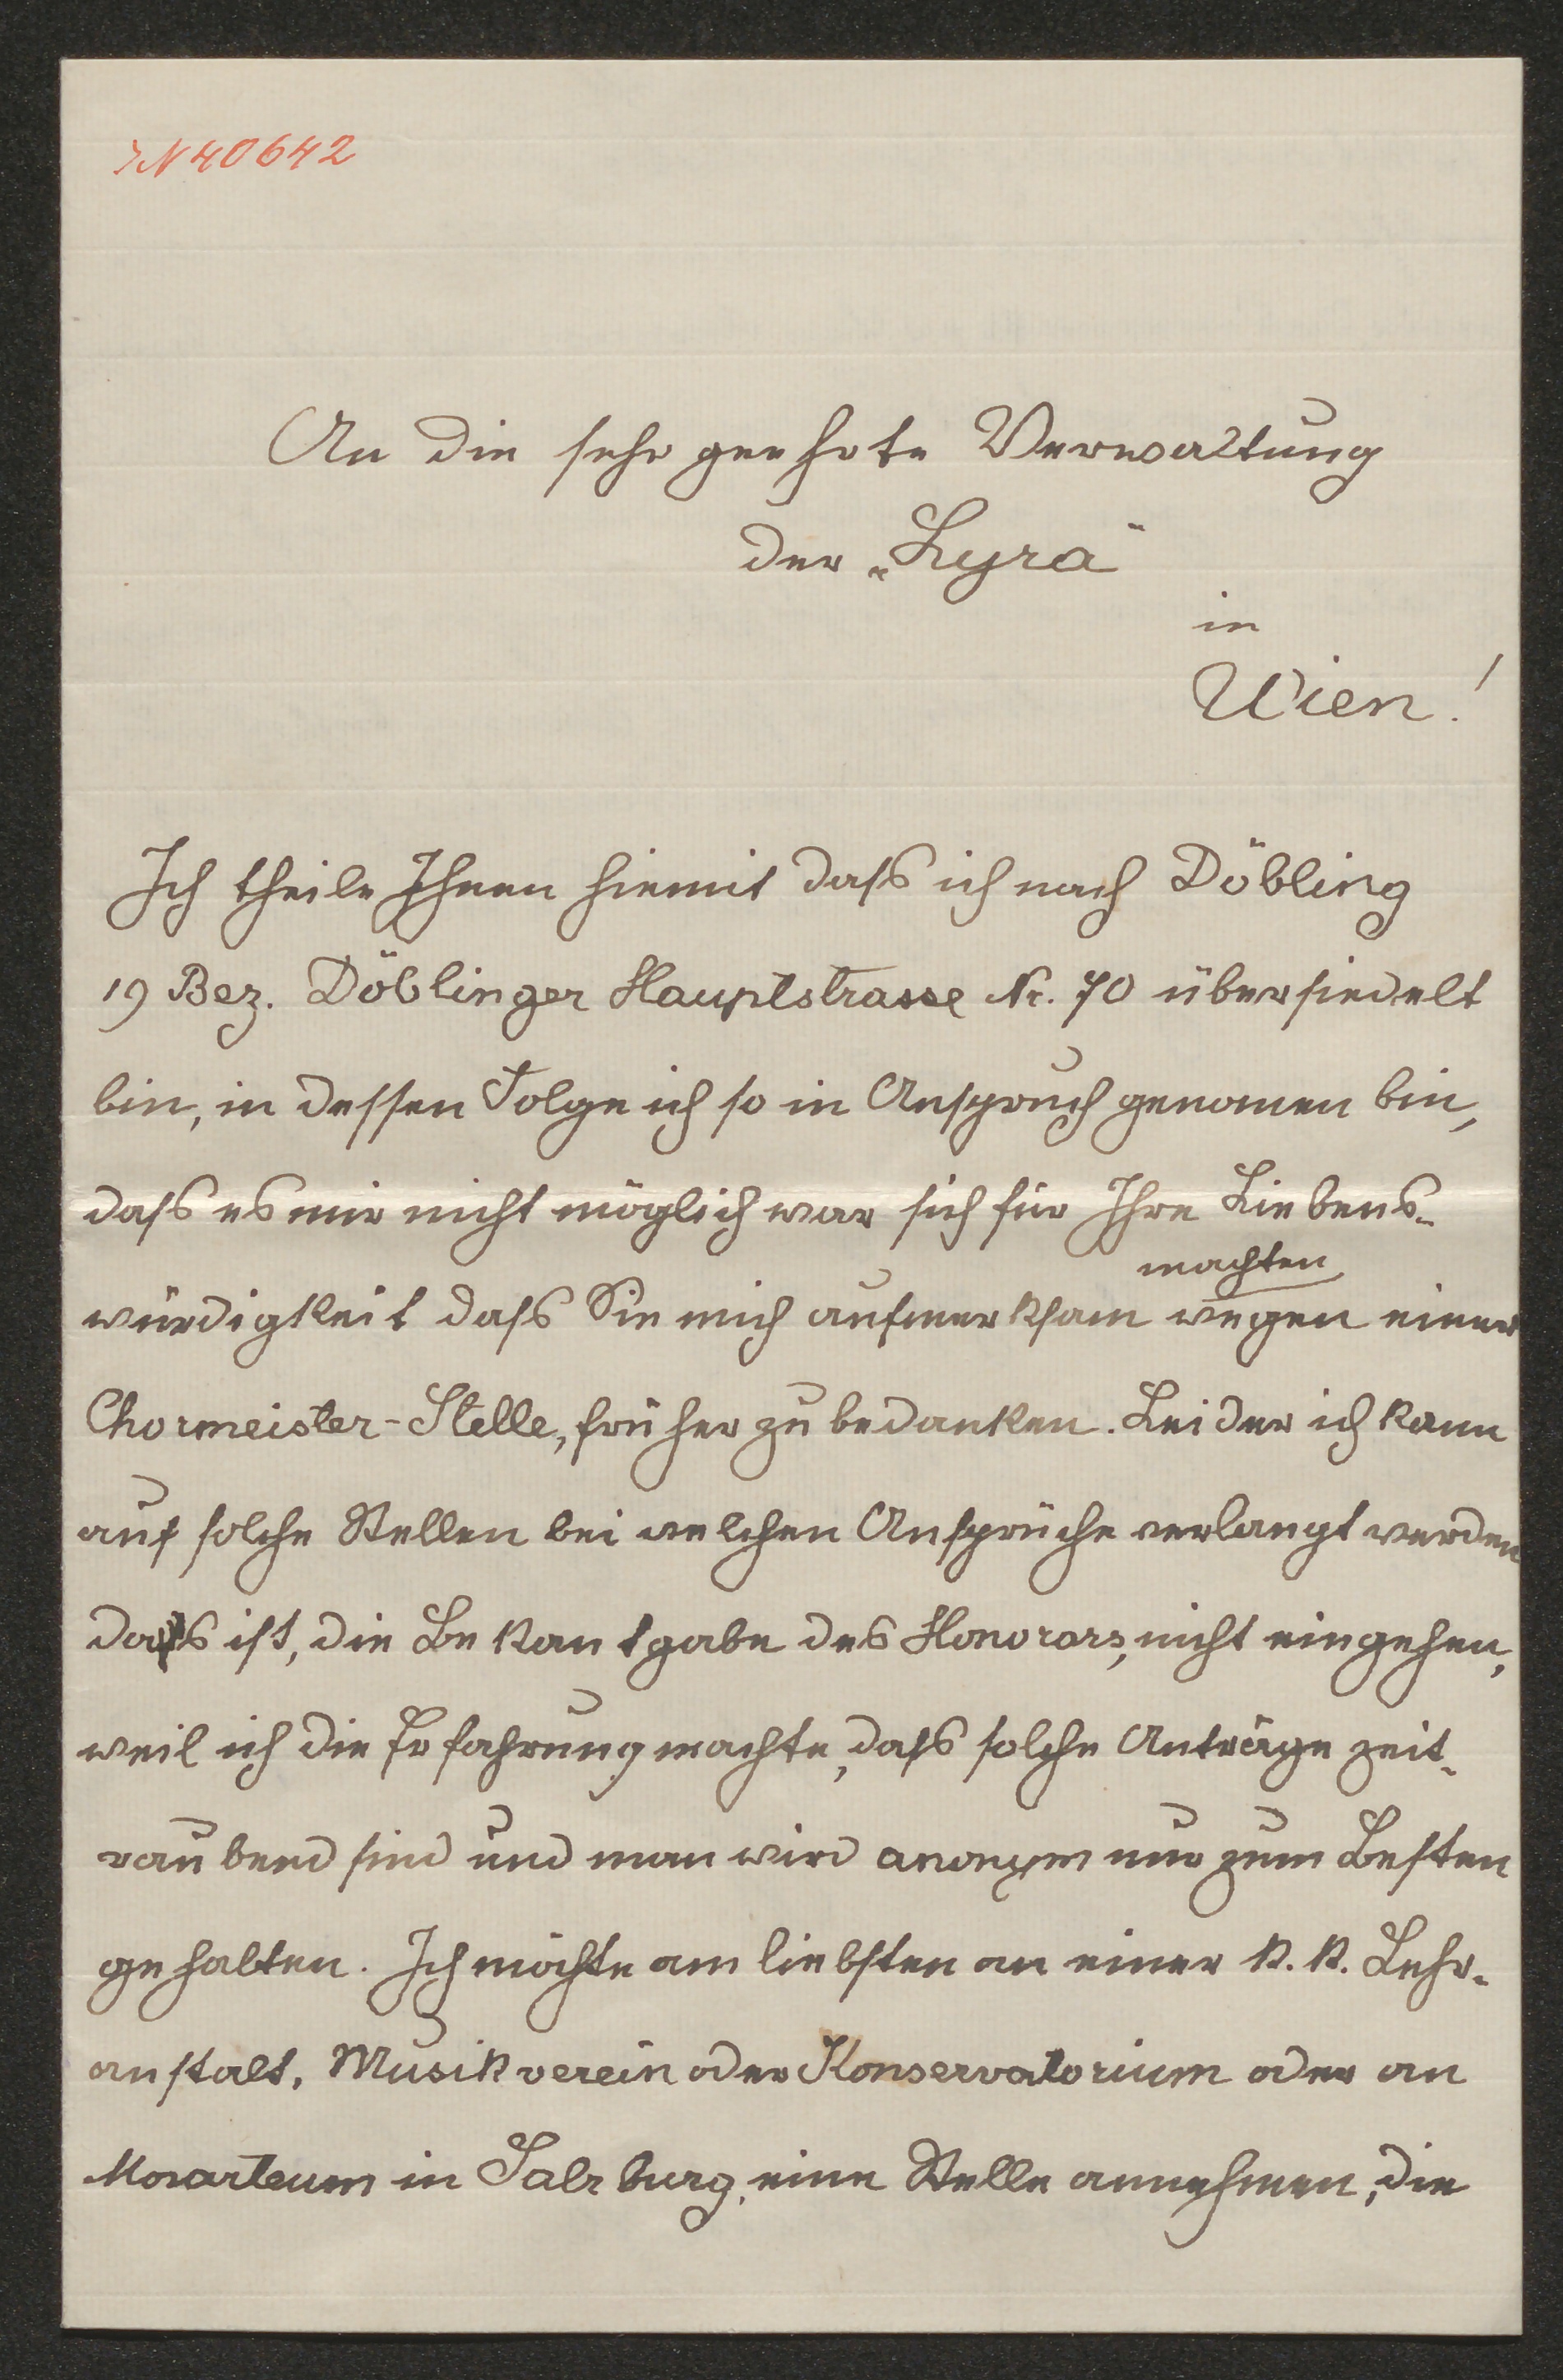 IN 40642
An die sehr geehrte Verwaltung
der „Lyra“
in
Wien!
Ich theile Ihnen hiemit daſs ich nach Döbling
19 Bez. Döblinger Hauptstrasse Nr. 70 übersiedelt
bin, in dessen Folge ich so in Anspruch genomen bin,
daſs es mir nicht möglich war sich für Ihre Liebens-
machten
würdigkeit daſs Sie mich aufmerksam wegen einer
Chormeister-Stelle, früher zu bedanken. Leider ich kann
auf solche Stellen bei welchen Ansprüche verlangt werden
das ist, die Bekantgabe des Honorars, nicht eingehen,
weil ich die Erfahrung machte, daſs solche Anträge zeit-
raubend sind und man wird anonym nur zum Besten
gehalten. Ich möchte am liebsten an einer k. k. Lehr-
anstalt, Musikverein oder Konservatorium oder an
Mozarteum in Salzburg, eine Stelle annehmen, die